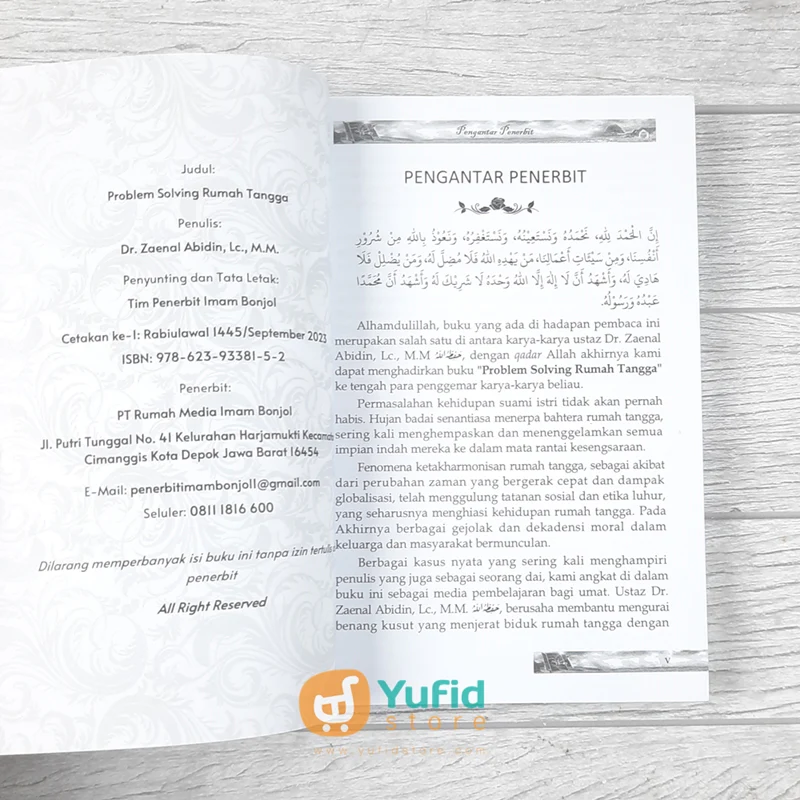 Judul:
Problem Solving Rumah Tangga
Penulis:
Dr. Zaenal Abidin, Lc., M.M.
Penyunting dan Tata Letak:
Tim Penerbit Imam Bonjol
Cetakan ke-1: Rabiulawal 1445/September 2023
ISBN: 978-623-93381-5-2
Penerbit:
PT Rumah Media Imam Bonjol
Jl. Putri Tunggal No. 41 Kelurahan Harjamukti Kecamatan
Cimanggis Kota Depok Jawa Barat 16454
E-Mail: penerbitimambonjol1@gmail.com
Seluler: 0811 1816 600
Dilarang memperbanyak isi buku ini tanpa izin tertulis
penerbit
All Right Reserved
Pengantar Penerbit
PENGANTAR PENERBIT
إِنَّ الْحَمْدَ لِلَّهِ، نَحْمَدُهُ وَنَسْتَعِيْنُهُ، وَنَسْتَغْفِرُهُ، وَنَعُوْذُ بِاللهِ مِنْ شُرُوْرِ
أَنْفُسِنَا، وَمِنْ سَيِّئَاتِ أَعْمَالِنَا، مَنْ يَهْدِهِ اللهُ فَلَا مُضِلَّ لَهُ، وَمَنْ يُضْلِلْ فَلَا
هَادِيَ لَهُ، وَأَشْهَدُ أَنْ لَا إِلَهَ إِلَّا اللهُ وَحْدَهُ لَا شَرِيْكَ لَهُ وَأَشْهَدُ أَنَّ مُحَمَّدًا
عَبْدُهُ وَرَسُوْلُهُ.
Alhamdulillah, buku yang ada di hadapan pembaca ini
merupakan salah satu di antara karya-karya ustaz Dr. Zaenal
Abidin, Lc., M.M حفظه الله, dengan qadar Allah akhirnya kami
dapat menghadirkan buku "Problem Solving Rumah Tangga"
ke tengah para penggemar karya-karya beliau.
Permasalahan kehidupan suami istri tidak akan pernah
habis. Hujan badai senantiasa menerpa bahtera rumah tangga,
sering kali menghempaskan dan menenggelamkan semua
impian indah mereka ke dalam mata rantai kesengsaraan.
Fenomena ketakharmonisan rumah tangga, sebagai akibat
dari perubahan zaman yang bergerak cepat dan dampak
globalisasi, telah menggulung tatanan sosial dan etika luhur,
yang seharusnya menghiasi kehidupan rumah tangga. Pada
Akhirnya berbagai gejolak dan dekadensi moral dalam
keluarga dan masyarakat bermunculan.
Berbagai kasus nyata yang sering kali menghampiri
penulis yang juga sebagai seorang dai, kami angkat di dalam
buku ini sebagai media pembelajaran bagi umat. Ustaz Dr.
Zaenal Abidin, Lc., M.M. حفظه الله, berusaha membantu mengurai
benang kusut yang menjerat biduk rumah tangga dengan
v
Yufid
store
www.yufidstore.com